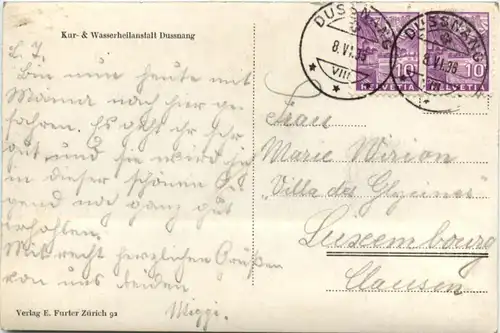 Kur- & Wasserheilanstalt Dussnang
L. T.
Bin nun heute mit
Mama nach hier ge-
fahren. Es geht ihr sehr
gut und sie wird sich
in dieser schönen Ge-
gend noch ganz gut
erhohlen.
Mit recht herzlichen Grüßen
von uns beiden
Miggi.
Verlag E. Furter Zürich 92
DUSSNANG
8.VI.36
VIII
DUSSNANG
8.VI.36
10
HELVETIA
10
HELVETIA
Frau
Marie Wirion
"Villa des Glycines"
Luxembourg
Clausen